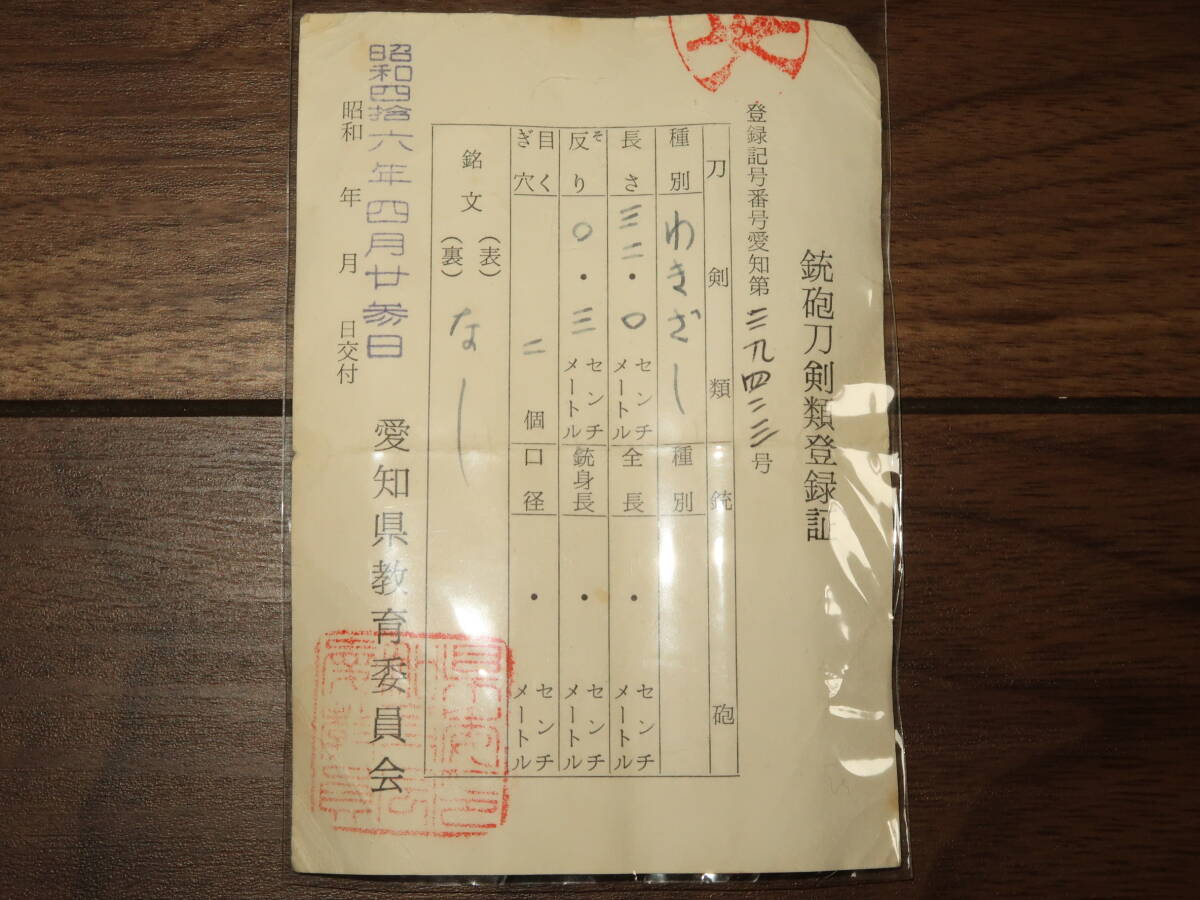 銃砲刀剣類登録証
登録記号番号愛知第三九四二三号
刀剣類 銃砲
種別 わきざし 種別
長さ 三二・〇 センチメートル 全長 ・ センチメートル
反り そ 〇・三 センチメートル 銃身長 ・ センチメートル
目くぎ穴 二 個 口径 ・ センチメートル
銘文 (表) (裏) なし
昭和四拾六年四月廿参日
昭和 年 月 日交付
愛知県教育委員会